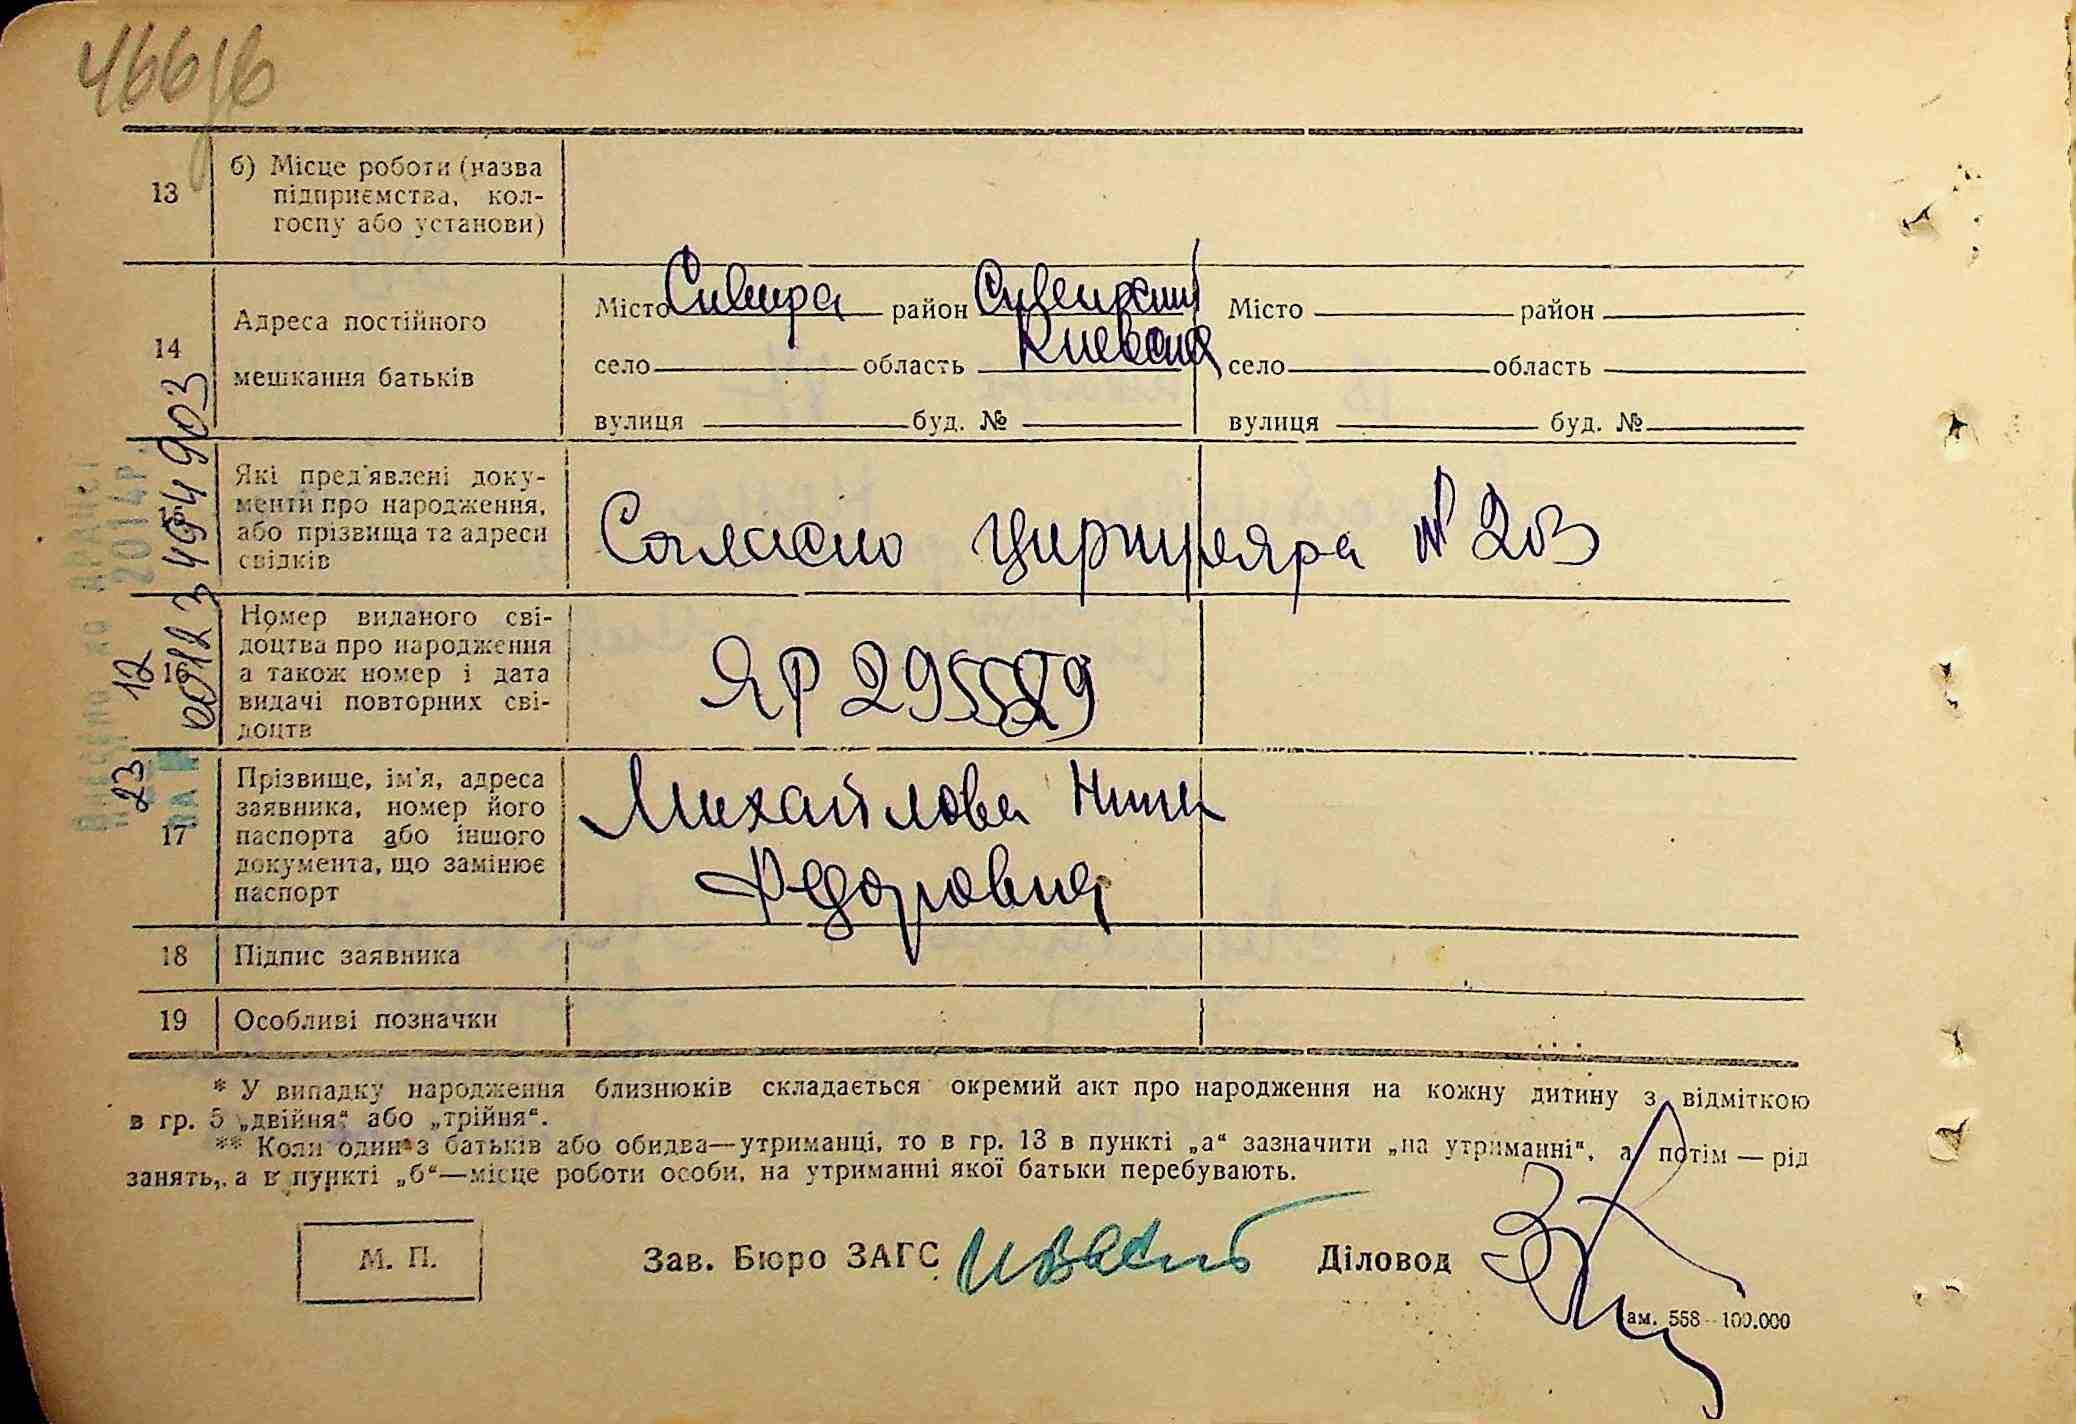 466
13
б) Місце роботи (назва
підприємства, кол-
госпу або установи)
14
Адреса постійного
мешкання батьків
Місто Сквира район Сквирский
село область Киевская
вулиця буд. №
Місто район
село область
вулиця буд. №
15
Які пред'явлені доку-
менти про народження,
або прізвища та адреси
свідків
Согласно циркуляра № 203
16
Номер виданого сві-
доцтва про народження
а також номер і дата
видачі повторних сві-
доцтв
ЯР 295589
17
Прізвище, ім'я, адреса
заявника, номер його
паспорта або іншого
документа, що замінює
паспорт
Михайлова Нина
Федоровна
18
Підпис заявника
19
Особливі позначки
2014р.
23 12
00123494903
* У випадку народження близнюків складається окремий акт про народження на кожну дитину з відміткою
в гр. 5 „двійня“ або „трійня“.
** Коли один з батьків або обидва—утриманці, то в гр. 13 в пункті „а“ зазначити „на утриманні“, а потім — рід
занять, а в пункті „б“—місце роботи особи, на утриманні якої батьки перебувають.
М. П.
Зав. Бюро ЗАГС
Діловод
Зам. 558—100.000